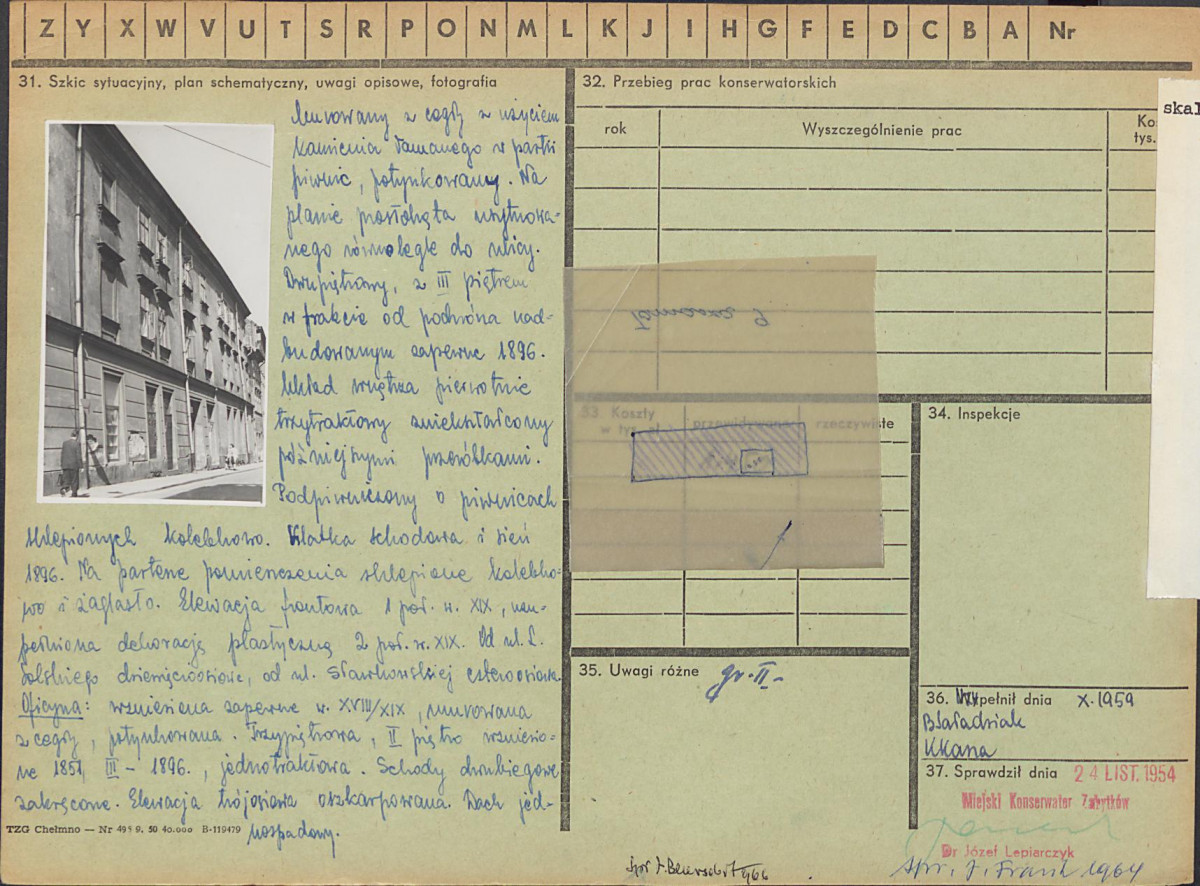 Z Y X W V U T S R P O N M L K J I H G F E D C B A Nr
31. Szkic sytuacyjny, plan schematyczny, uwagi opisowe, fotografia
Murowany z cegły z użyciem
kamienia łamanego w partii
piwnic, potynkowany. Na
planie prostokąta usytuowa-
nego równolegle do ulicy.
Dwupiętrowy, z III piętrem
w trakcie od podwórza nad-
budowanym zapewne 1896.
Układ wnętrza pierwotnie
trzytraktowy zniekształcony
późniejszymi przeróbkami.
Podpiwniczony o piwnicach
sklepionych kolebkowo. Klatka schodowa i sień
1896. Na parterze pomieszczenia sklepione kolebko-
wo i żaglasto. Elewacja frontowa 1 poł. w. XIX, uzu-
pełniona dekoracją plastyczną 2 poł. w. XIX. Od ul. L.
Solskiego dziewięcioosiowa, od ul. Sławkowskiej czteroosiowa.
Oficyna: wzniesiona zapewne w. XVIII/XIX, murowana
z cegły, potynkowana. Trzypiętrowa, II piętro wzniesio-
ne 1851, III - 1896., jednotraktowa. Schody dwubiegowe
zakręcone. Elewacja trójosiowa oszkarpowana. Dach jed-
nospadowy.
TZG Chełmno — Nr 495 9. 50 40.000 B-119479
32. Przebieg prac konserwatorskich
rok Wyszczególnienie prac Ko
tys.
skal
Tomasza 9
33. Koszty
w tys. zł przewidywane rzeczywiste
34. Inspekcje
35. Uwagi różne
gr. II-
36. Wypełnił dnia X.1959
KKana
37. Sprawdził dnia 24 LIST. 1954
Miejski Konserwator Zabytków
Dr Józef Lepiarczyk
Spr. J. Frank 1964
1966